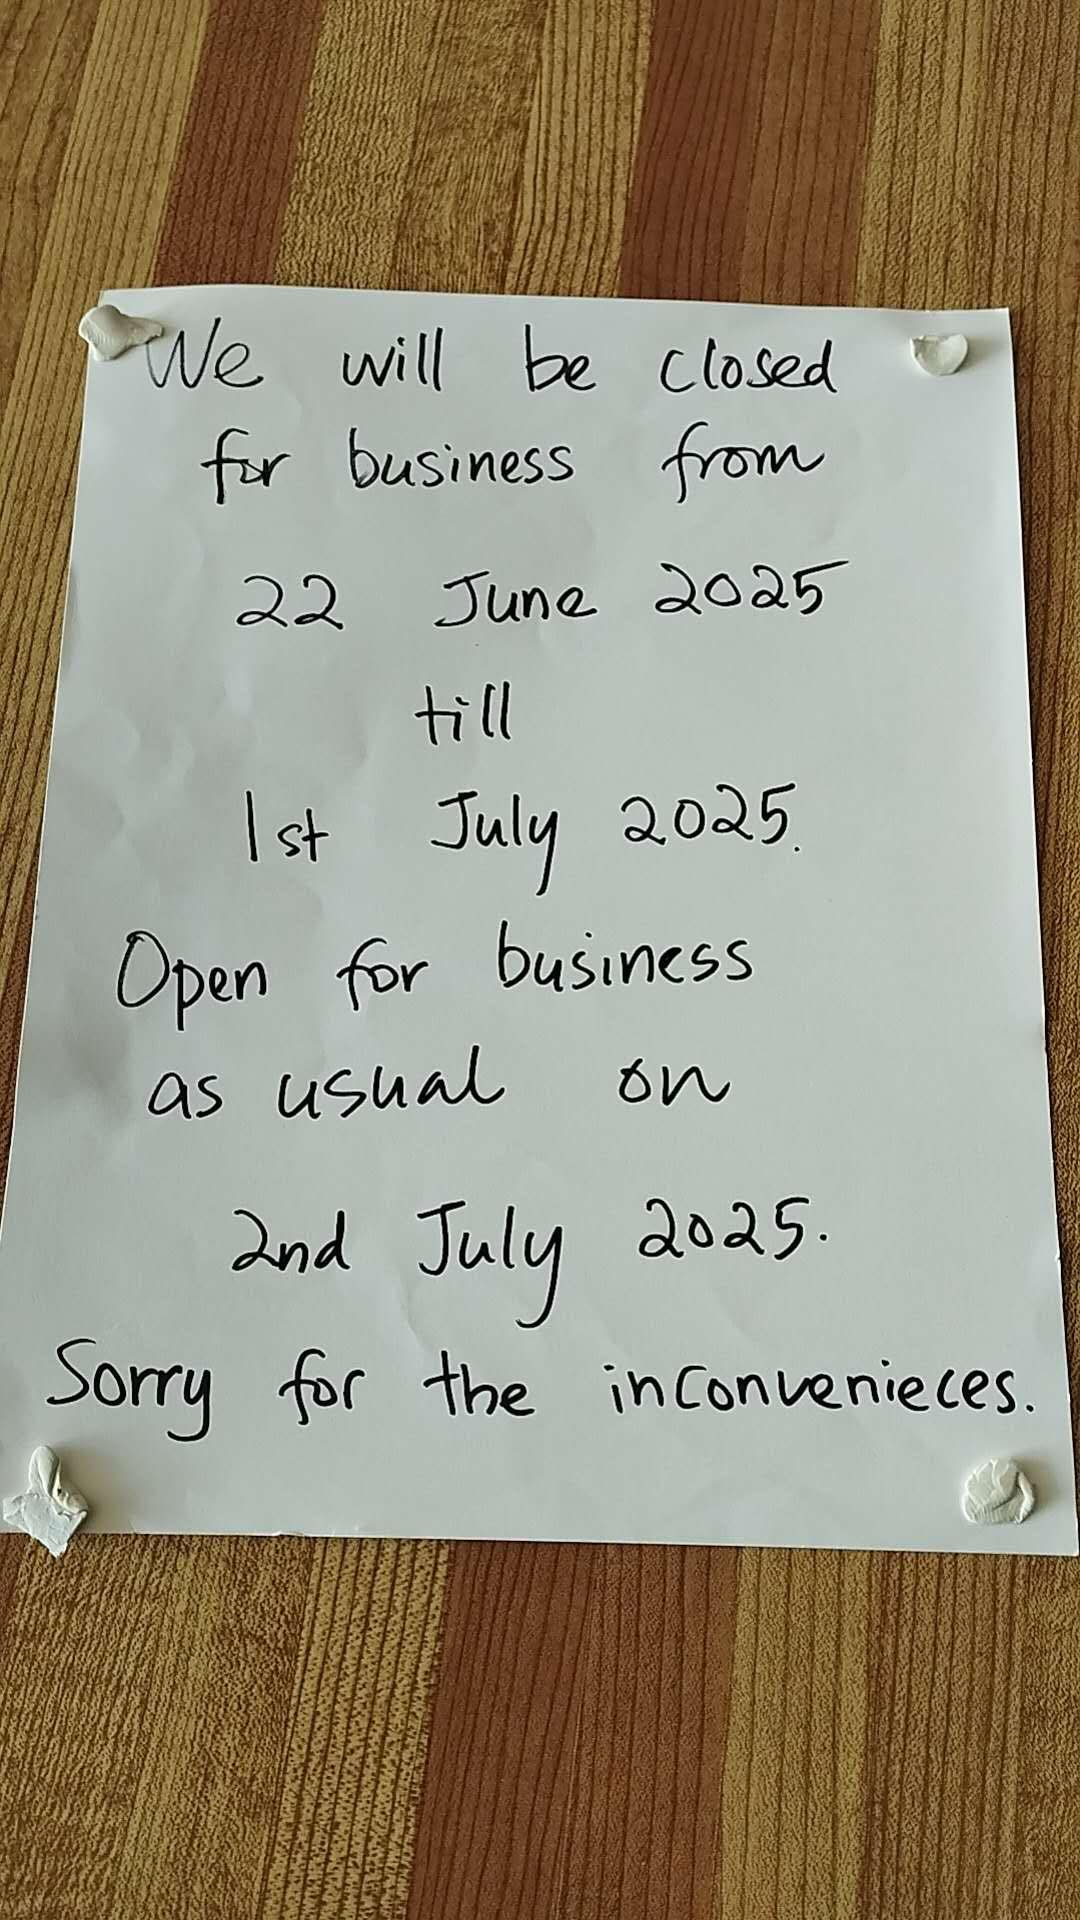 We will be closed
for business from
22 June 2025
till
1st July 2025.
Open for business
as usual on
2nd July 2025.
Sorry for the inconvenieces.